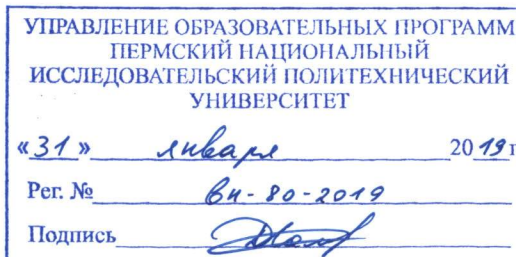 УПРАВЛЕНИЕ ОБРАЗОВАТЕЛЬНЫХ ПРОГРАММ
ПЕРМСКИЙ НАЦИОНАЛЬНЫЙ
ИССЛЕДОВАТЕЛЬСКИЙ ПОЛИТЕХНИЧЕСКИЙ
УНИВЕРСИТЕТ
«31» января 2019 г
Рег. № вн-80-2019
Подпись